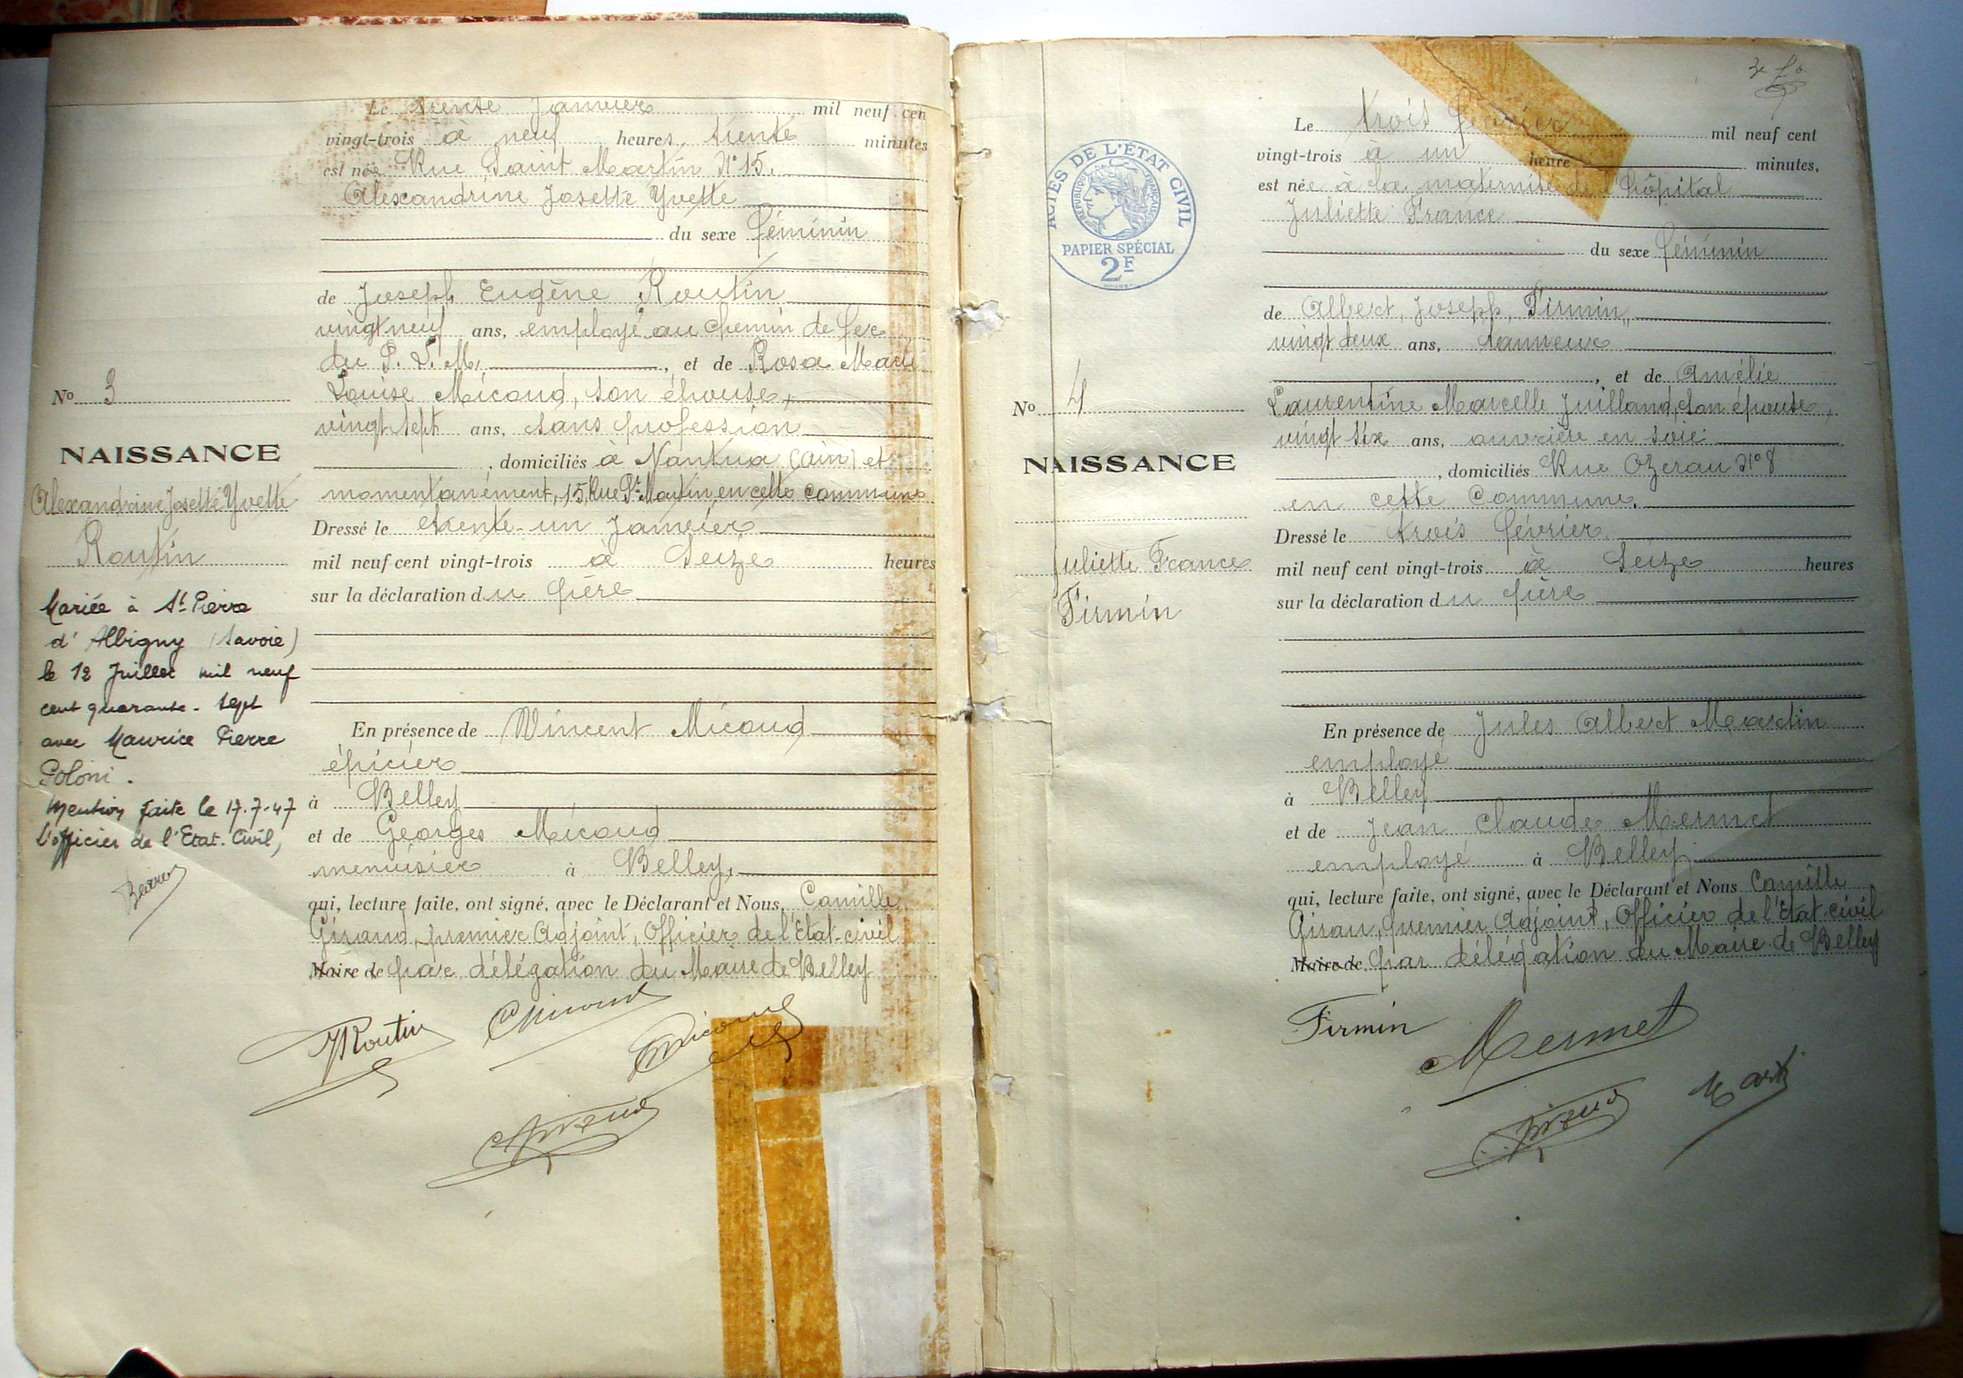 Le trente Janvier mil neuf cen
vingt-trois à neuf heures, trente minutes
est née Rue Saint Martin N° 15.
Alexandrine Josette Yvette
du sexe féminin
de Joseph Eugène Routin
vingt neuf ans, employé au chemin de fer
du P. L. M. , et de Rosa Marie
Louise Micoud, son épouse,
vingt sept ans, sans profession
, domiciliés à Nantua (Ain) et
momentanément, 15, Rue St Martin, en cette commune
Dressé le trente-un Janvier
mil neuf cent vingt-trois à Seize heures
sur la déclaration du père
En présence de Vincent Micoud
épicier
à Belley
et de Georges Micoud
menuisier à Belley,
qui, lecture faite, ont signé, avec le Déclarant et Nous, Camille
Giraud, premier Adjoint, Officier de l'Etat-civil
Maire de par délégation du Maire de Belley
Routin
Micoud
Micoud
No 3
NAISSANCE
Alexandrine Josette Yvette
Routin
Mariée à St Pierre
d'Albigny (Savoie)
le 12 Juillet mil neuf
cent quarante-sept
avec Maurice Pierre
Poloni.
Mention faite le 17-7-47
L'officier de l'Etat-Civil,
ACTES DE L'ÉTAT CIVIL
PAPIER SPÉCIAL
2F
Le trois février mil neuf cent
vingt-trois à un heure minutes,
est née à la maternité de l'hôpital
Juliette France
du sexe féminin
de Albert, Joseph, Firmin,
vingt deux ans, tanneur
, et de Amélie
Laurentine Marcelle Juilland, son épouse,
vingt six ans, ouvrière en soie
, domiciliés Rue Ozerau N° 8
en cette Commune.
Dressé le trois février
mil neuf cent vingt-trois à Seize heures
sur la déclaration du père
En présence de Jules Albert Martin
employé
à Belley
et de Jean Claude Mermet
employé à Belley
qui, lecture faite, ont signé, avec le Déclarant et Nous Camille
Girau, premier Adjoint, Officier de l'Etat-civil
Maire de par délégation du Maire de Belley
Firmin
Mermet
No 4
NAISSANCE
Juliette France
Firmin